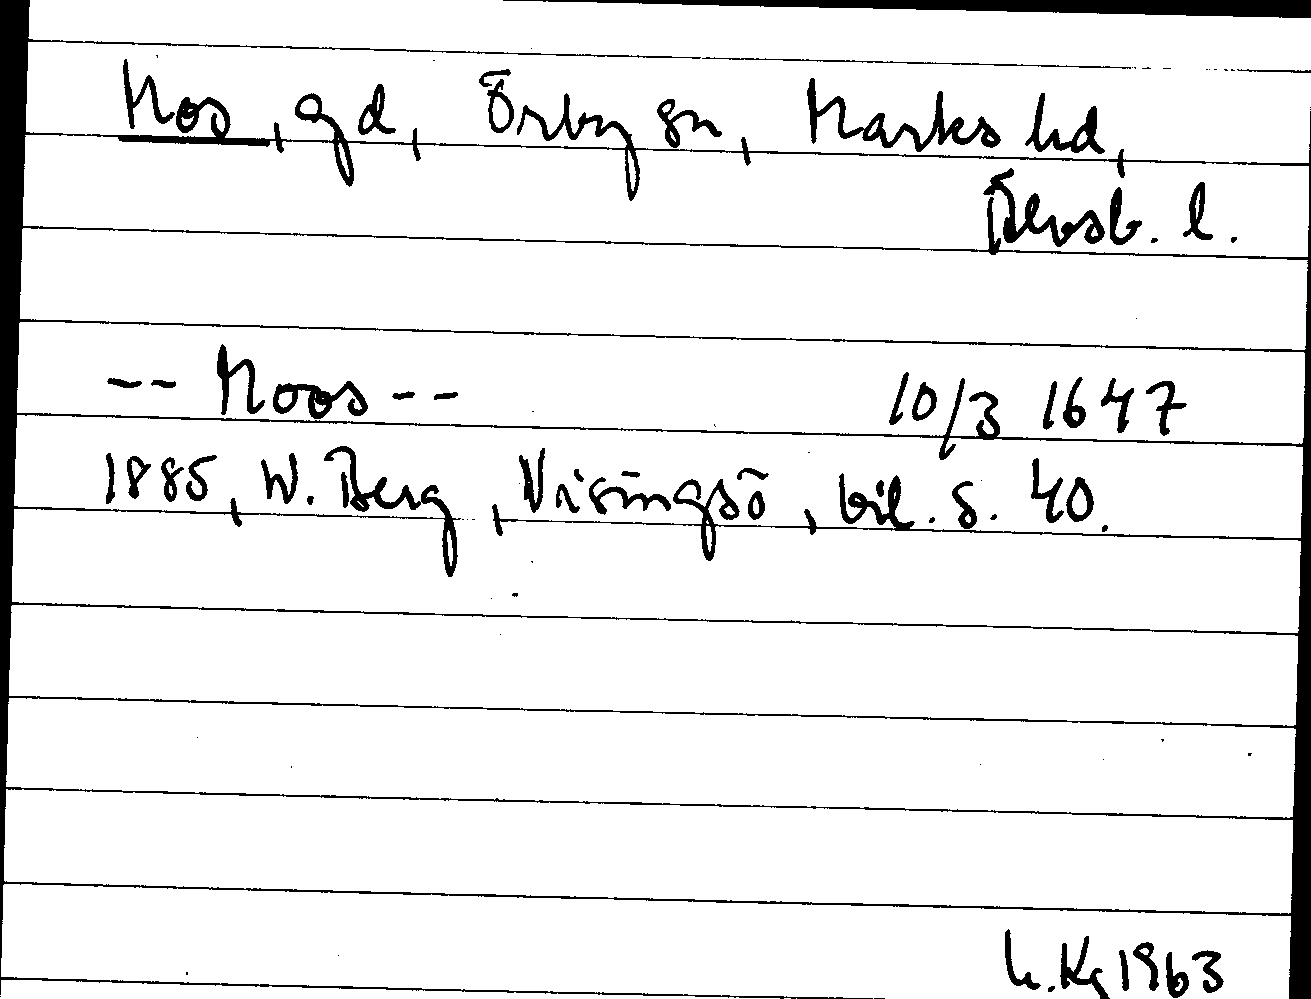 Mos, gd, Örby sn, Marks hd,
Älvsb. l.
-- Moos -- 10/3 1647
1885, W. Berg, Visingsö, bil. s. 40.
1963